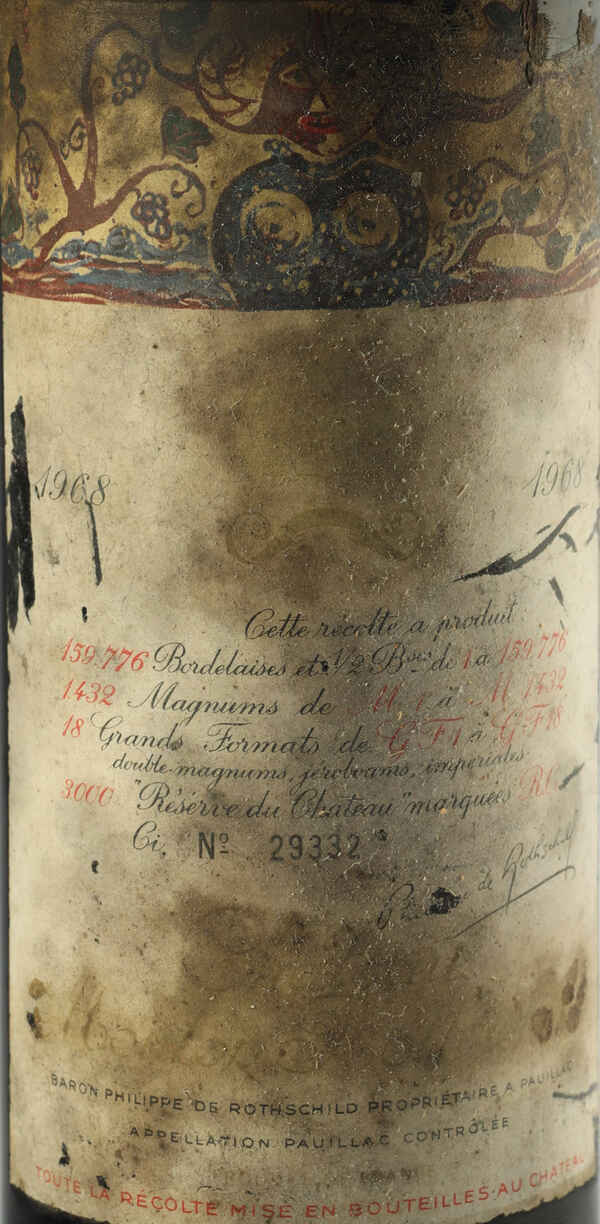 1968 1968
Cette récolte a produit:
159.776 Bordelaises et 1/2 Bses de 1 à 159.776
1432 Magnums de M 1 à M 1432
18 Grands Formats de G F 1 à G F 18
double-magnums, jéroboams, impériales
3.000 "Réserve du Château" marquées R.C.
Ci, Nº 29332
Philippe de Rothschild
Mouton
BARON PHILIPPE DE ROTHSCHILD PROPRIÉTAIRE A PAUILLAC
APPELLATION PAUILLAC CONTRÔLÉE
TOUTE LA RÉCOLTE MISE EN BOUTEILLES AU CHATEAU